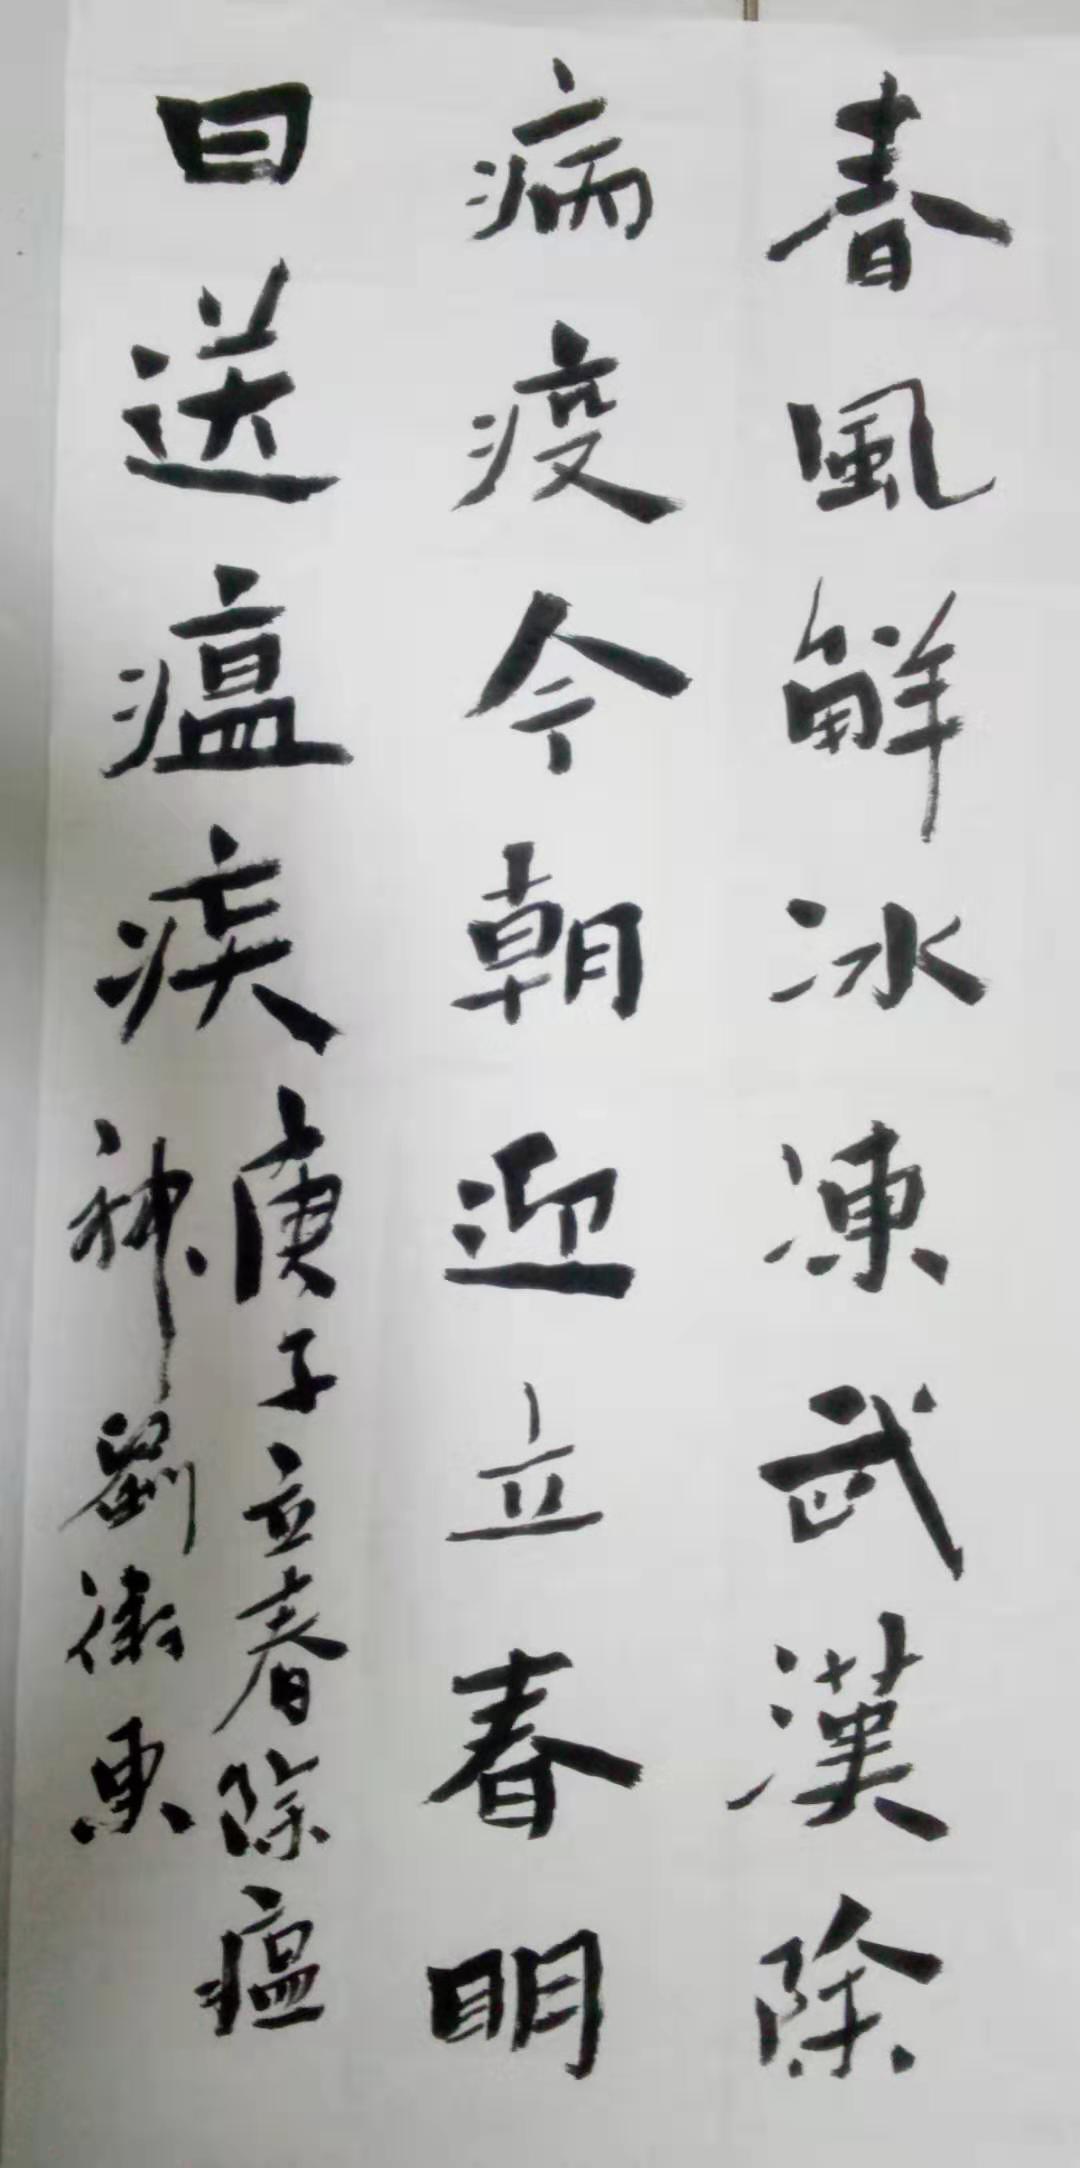 春風觧冰凍武漢除
病疫今朝迎立春明
日送瘟疾
庚子立春除瘟
神劉衛東